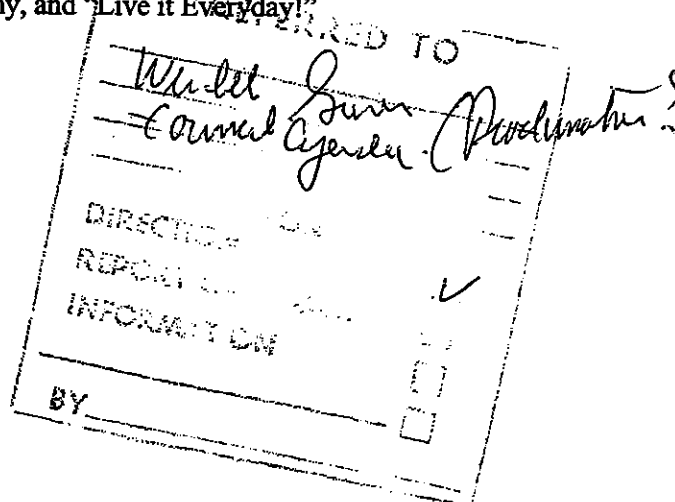 ny, and "Live it Everyday!"
REFERRED TO
Council Agenda (Proclamation)
DIRECTION
REPORT
INFORMATION
BY